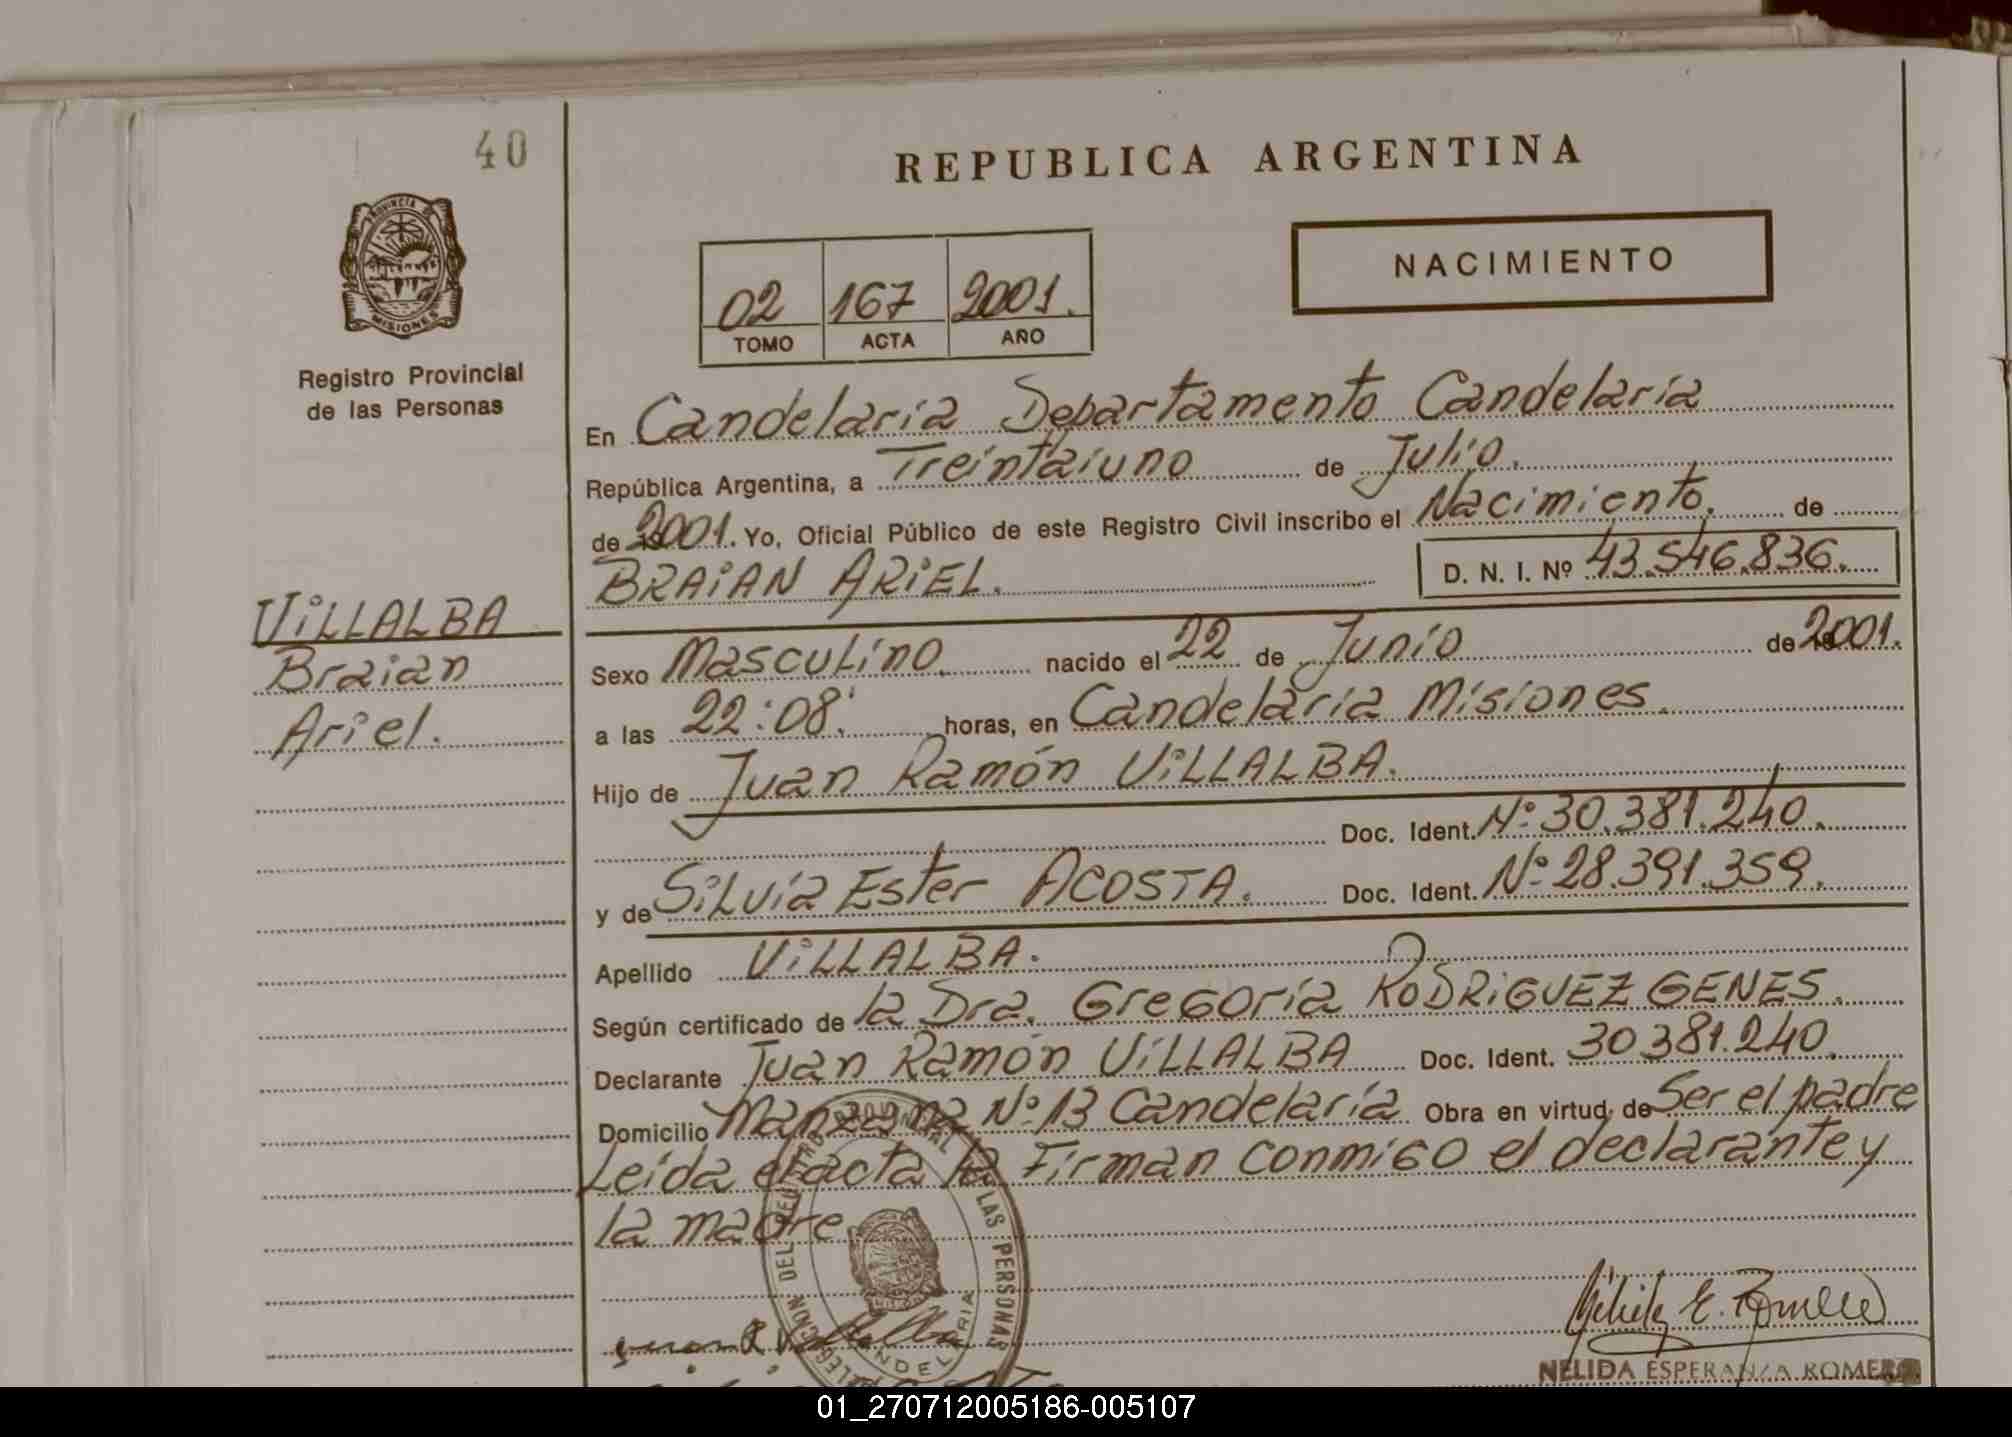 40
REPUBLICA ARGENTINA
PROVINCIA DE
MISIONES
Registro Provincial
de las Personas
NACIMIENTO
02 167 2001.
TOMO ACTA AÑO
En Candelaria Departamento Candelaria
República Argentina, a Treintaiuno de Julio.
de 2001. Yo, Oficial Público de este Registro Civil inscribo el Nacimiento. de
BRAiAN ARiEL. D. N. I. Nº 43.546.836.
ViLLALBA
Braian
Ariel.
Sexo Masculino. nacido el 22 de Junio de 2001.
a las 22:08'. horas, en Candelaria Misiones.
Hijo de Juan Ramón ViLLALBA.
Doc. Ident. Nº 30.381.240.
y de Silvia Ester ACOSTA. Doc. Ident. Nº 28.391.359.
Apellido ViLLALBA.
Según certificado de la Dra. Gregoria RODRiGUEZ GENES.
Declarante Juan Ramón ViLLALBA Doc. Ident. 30381.240.
Domicilio Manzana Nº 13 Candelaria Obra en virtud de Ser el padre
Leida el acta la Firman conmigo el declarante y
la madre
NELIDA ESPERANZA ROMERO
01_270712005186-005107